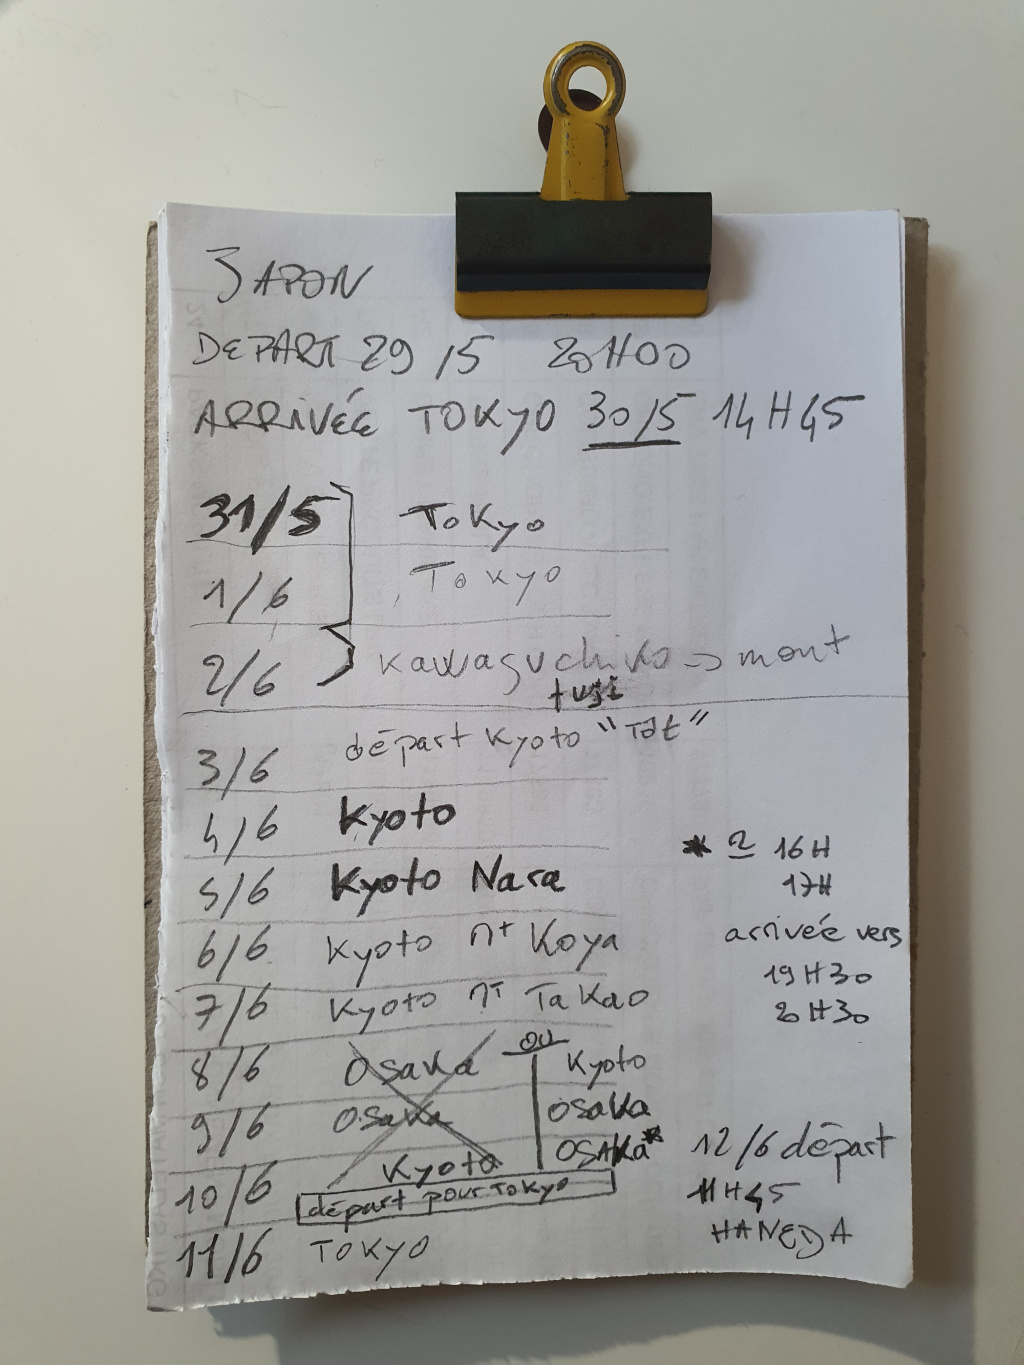 JAPON
DEPART 29/5 20H00
ARRIVÉE TOKYO 30/5 14H45
31/5 Tokyo
1/6 Tokyo
2/6 Kawaguchiko → mont
fuji
3/6 départ Kyoto "Tôt"
4/6 Kyoto
5/6 Kyoto Nara
6/6 Kyoto Mt Koya
7/6 Kyoto Mt Takao
8/6 Osaka ou Kyoto
9/6 Osaka Osaka
10/6 Kyoto OSAKA*
départ pour TOKYO
11/6 TOKYO
* 2 16H
17H
arrivée vers
19H30
20H30
12/6 départ
11H45
HANEDA